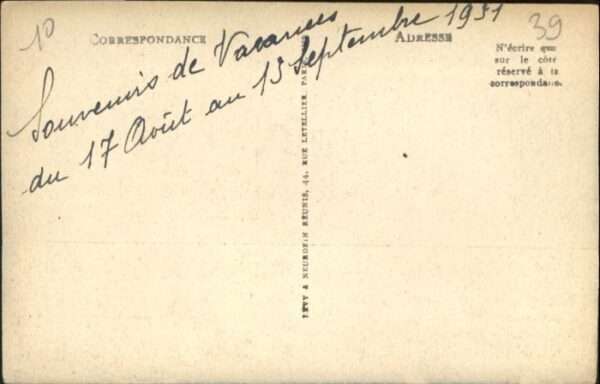 10
39
CORRESPONDANCE
ADRESSE
N'écrire que
sur le côté
réservé à la
correspondance.
Souvenirs de Vacances
du 17 Août au 13 Septembre 1931
LÉVY & NEURDEIN RÉUNIS, 44, RUE LETELLIER, PAR